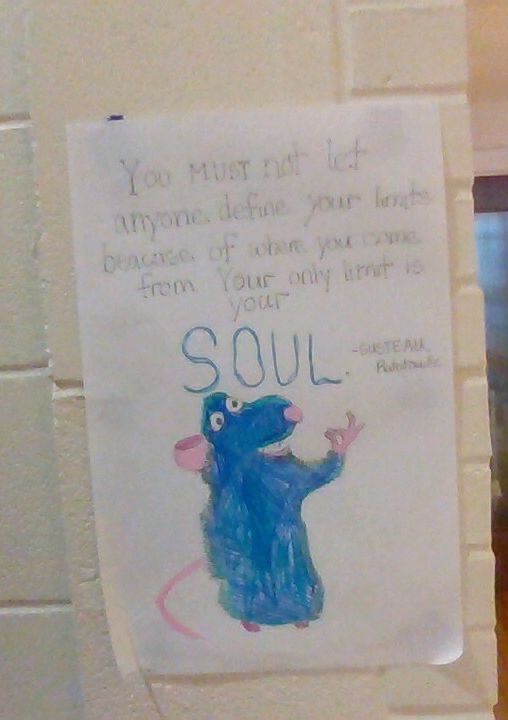 You MUST not let
anyone define your limits
beacuse of where you come
from Your only limit is
your
SOUL.
-GUSTEAU,
Ratatouille